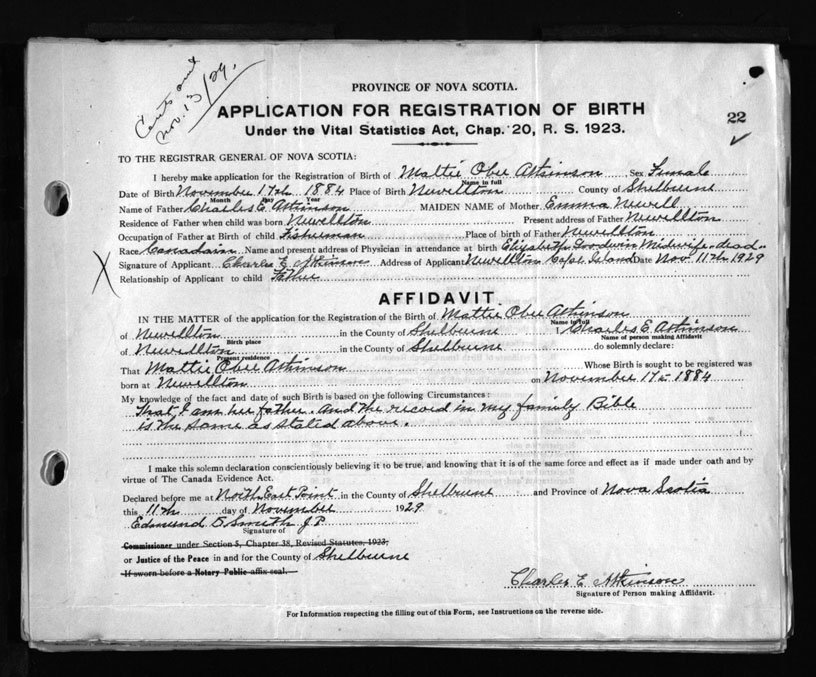 Cert sent
Nov. 13/29.
PROVINCE OF NOVA SCOTIA.
APPLICATION FOR REGISTRATION OF BIRTH
22
Under the Vital Statistics Act, Chap. 20, R. S. 1923.
TO THE REGISTRAR GENERAL OF NOVA SCOTIA:
I hereby make application for the Registration of Birth of Mattie Obee Atkinson Sex Female
Name in full
Date of Birth November 17th 1884 Place of Birth Newellton County of Shelburne
Month Day Year
Name of Father Charles E. Atkinson MAIDEN NAME of Mother Emma Newell
Residence of Father when child was born Newellton Present address of Father Newellton
Occupation of Father at Birth of child Fisherman Place of birth of Father Newellton
Race Canadain Name and present address of Physician in attendance at birth Elizabeth Goodwin Midwife - dead -
X Signature of Applicant Charles E. Atkinson Address of Applicant Newellton Cape Island Date Nov 11th 1929
Relationship of Applicant to child Father
AFFIDAVIT
IN THE MATTER of the application for the Registration of the Birth of Mattie Obee Atkinson
Name in full
of Newellton in the County of Shelburne I, Charles E. Atkinson
Birth place Name of person making Affidavit
of Newellton in the County of Shelburne do solemnly declare:
Present residence
That Mattie Obee Atkinson Whose Birth is sought to be registered was
born at Newellton on November 17th 1884
My knowledge of the fact and date of such Birth is based on the following Circumstances:
That I am her father. And the record in my family Bible
is the same as stated above.
I make this solemn declaration conscientiously believing it to be true, and knowing that it is of the same force and effect as if made under oath and by
virtue of The Canada Evidence Act.
Declared before me at North East Point in the County of Shelburne and Province of Nova Scotia
this 11th day of November 1929
Edmund D. Smith J.P.
Signature of
Commissioner under Section 5, Chapter 38, Revised Statutes, 1923,
or Justice of the Peace in and for the County of Shelburne
If sworn before a Notary Public affix seal.
Charles E Atkinson
Signature of Person making Affidavit.
For Information respecting the filling out of this Form, see Instructions on the reverse side.